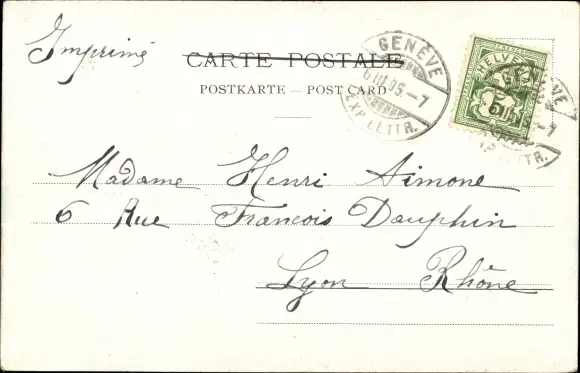 Imprimé
CARTE POSTALE
POSTKARTE — POST CARD
GENÈVE
6 III. 05. — 7
EXP. LETTR.
HELVETIA
5
GENÈVE
EXP. LETTR.
Madame Henri Aimone
6 Rue Francois Dauphin
Lyon Rhône